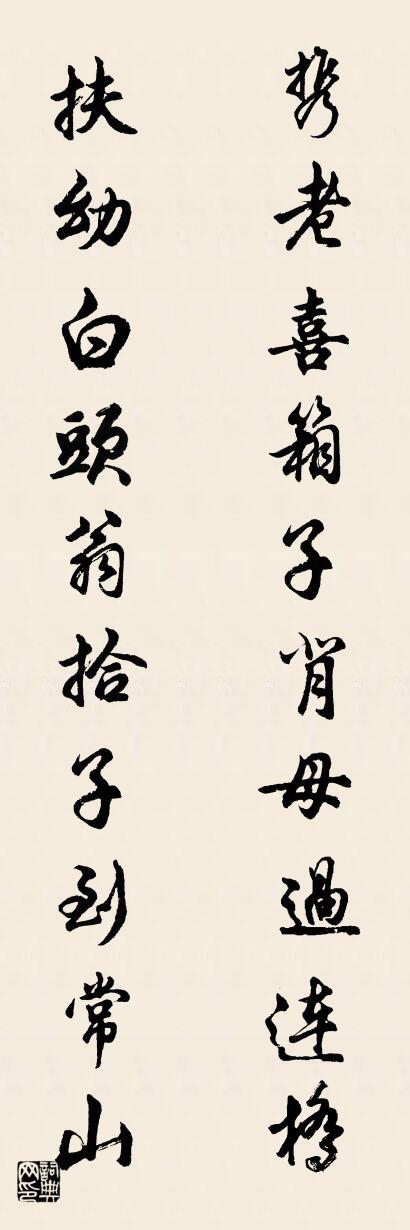 携老喜箱子肖母過連橋
扶幼白頭翁拾子到常山
詞典网印